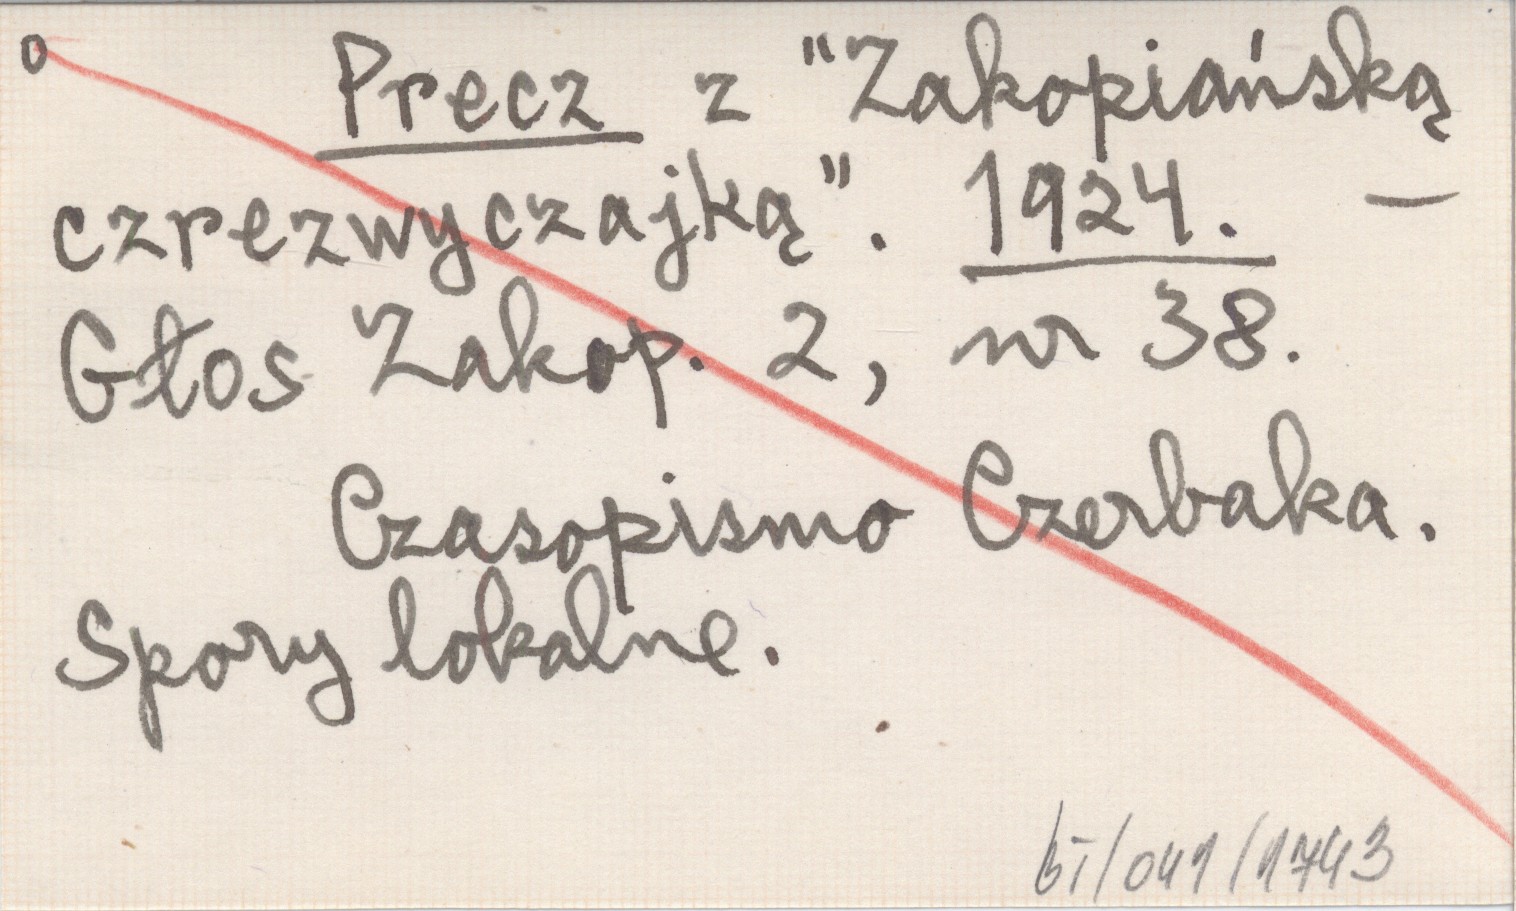 o Precz z "Zakopiańską
czrezwyczajką". 1924. —
Głos Zakop. 2, nr 38.
Czasopismo Czerbaka.
Spory lokalne.
bI/041/1743